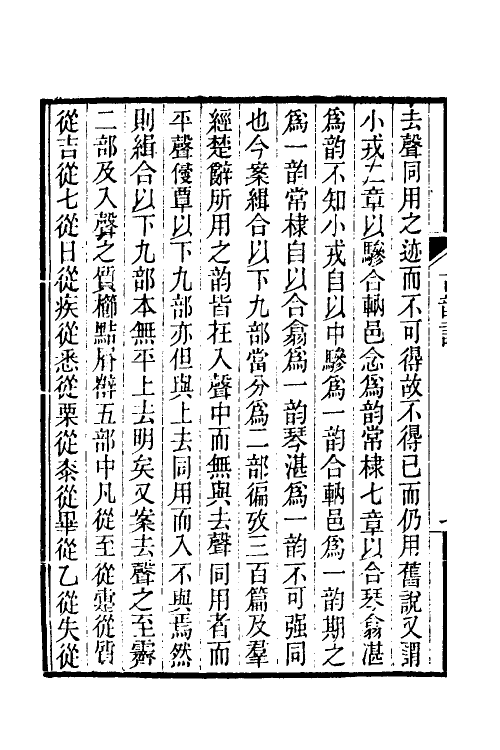 去聲同用之迹而不可得故不得已而仍用舊說又謂
小戎二章以驂合軜邑念爲韵常棣七章以合琴翕湛
爲韵不知小戎自以中驂爲一韵合軜邑爲一韵期之
爲一韵常棣自以合翕爲一韵琴湛爲一韵不可强同
也今案緝合以下九部當分爲二部徧攷三百篇及羣
經楚辭所用之韵皆在入聲中而無與去聲同用者而
平聲侵覃以下九部亦但與上去同用而入不與焉然
則緝合以下九部本無平上去明矣又案去聲之至霽
二部及入聲之質櫛黠屑薛五部中凡從至從疐從質
從吉從七從日從疾從悉從栗從桼從畢從乙從失從